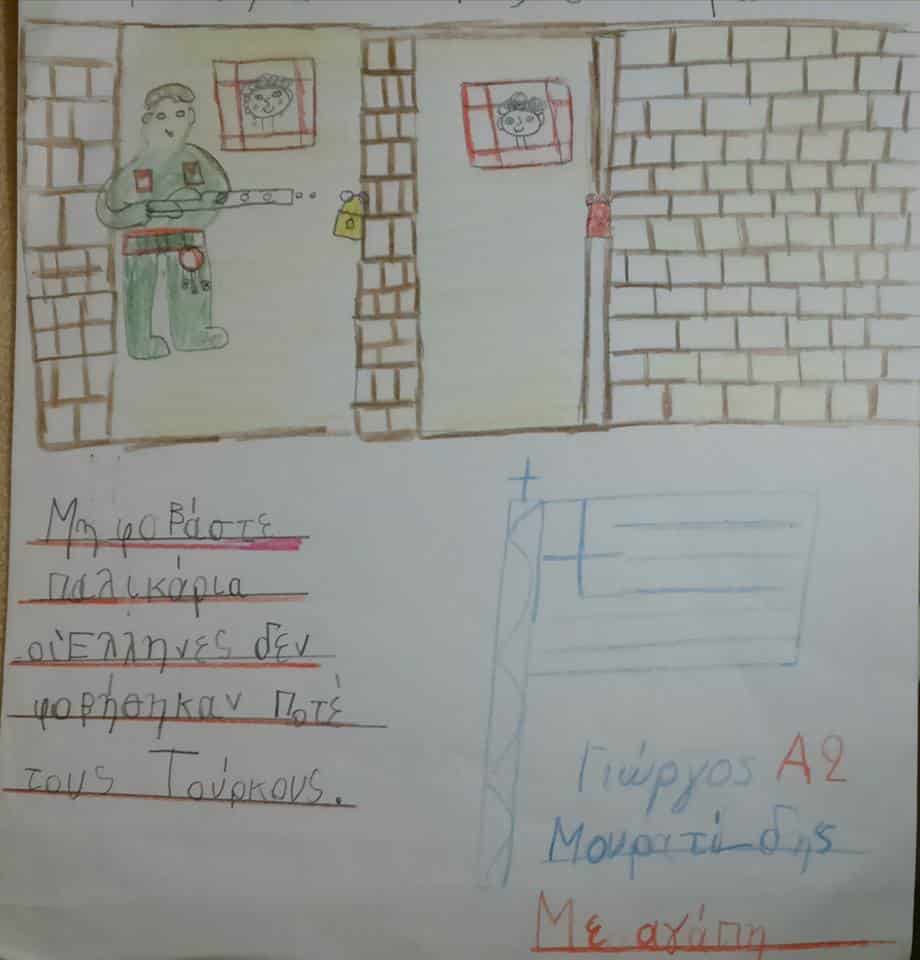 Μη φοβάστε
παλικάρια
οι Έλληνες δεν
φοβήθηκαν Ποτέ
τους Τούρκους.
Γιώργος Α2
Μουρατίδης
Με αγάπη